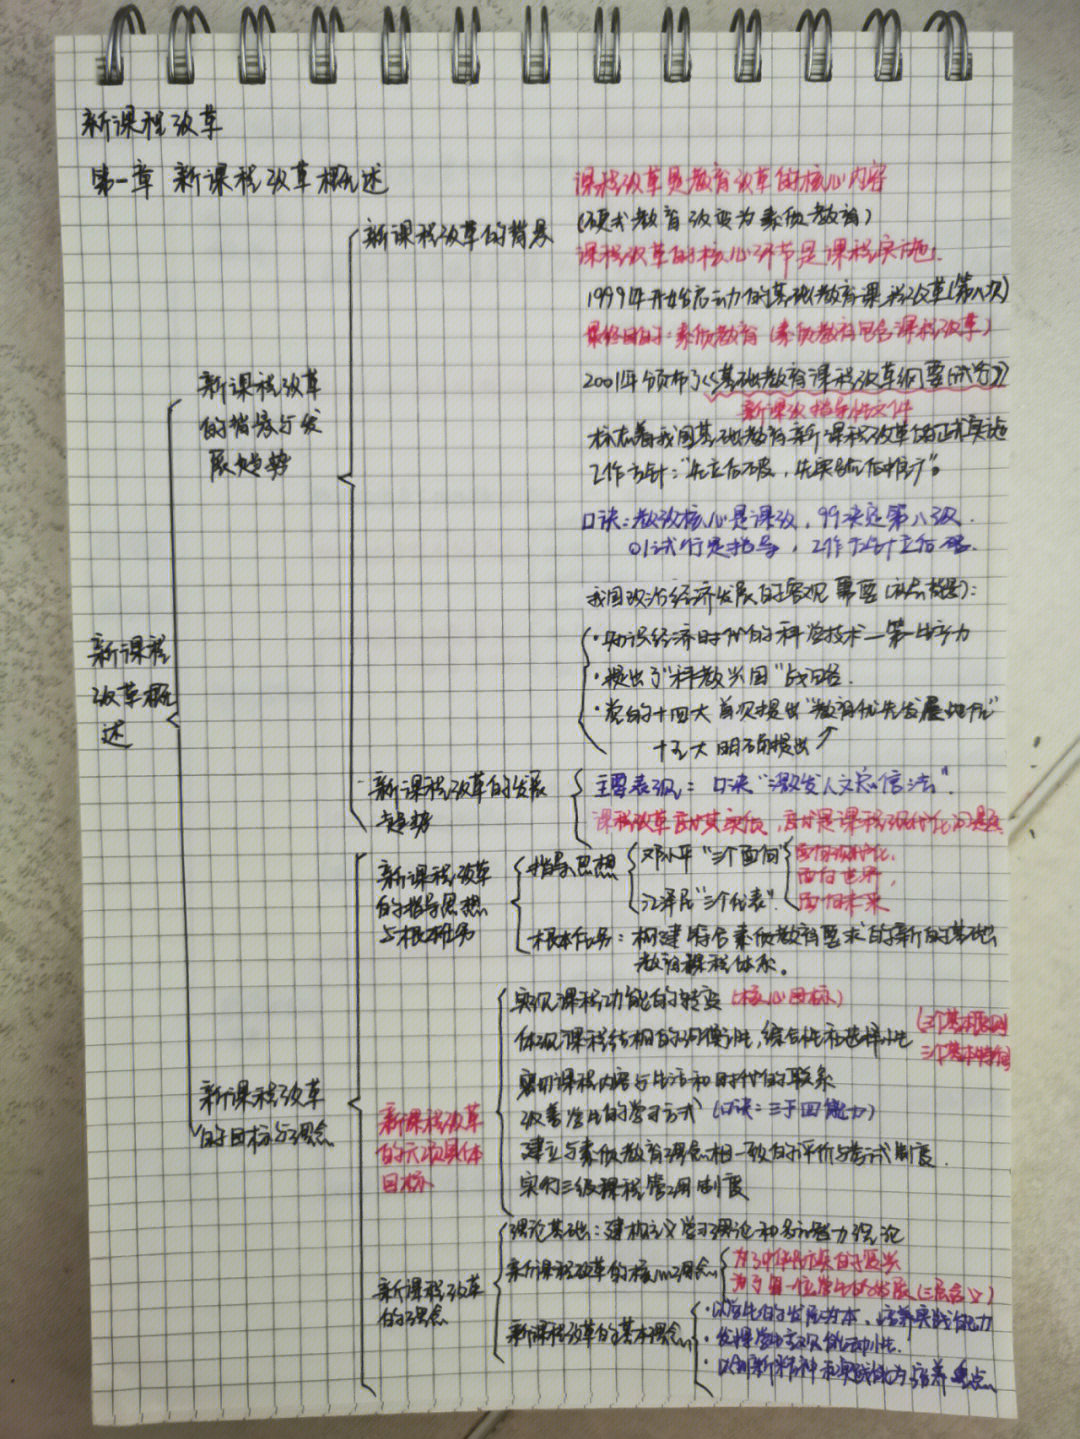 新课程改革
第一章 新课程改革概述
课程改革是教育改革的核心内容
新课程改革的背景
(应试教育改变为素质教育)
课程改革的核心环节是课程实施.
1999年开始启动的基础教育课程改革(第八次)
最终目的: 素质教育 (素质教育包含课程改革)
新课程改革
的背景与发
展趋势
2001年颁布了《基础教育课程改革纲要(试行)》
新课改指导性文件
标志着我国基础教育新课程改革的正式实施
工作方针:"先立后破,先实验后推广"。
口诀:教改核心是课改,99决定第八级.
01试行是指导,工作方针立后破.
我国政治经济发展的客观需要(社会背景):
·知识经济时代的科学技术—第一生产力
·提出了"科教兴国"战略.
·党的十四大首次提出"教育优先发展战略"
十五大明确提出↗
新课程
改革概
述
新课程改革的发展
趋势
主要表现: 口诀"激发人文总信法".
课程改革 其实质,
新课程改革
的指导思想
与根本任务
指导思想
邓小平"三个面向"
面向现代化,
面向世界,
面向未来
江泽民"三个代表".
根本任务:构建符合素质教育要求的新的基础
教育课程体系。
新课程改革
的目标与理念
新课程改革
的六项具体
目标
实现课程功能的转变 (核心目标)
体现课程结构的均衡性,综合性和选择性
(三个基本原则
三个基本特征)
密切课程内容与生活和时代的联系
改善学生的学习方式 (口诀:三手四能力)
建立与素质教育理念相一致的评价与考试制度.
实行三级课程管理制度
新课程改革
的理念
理论基础:建构主义学习理论和多元智力理论
新课程改革的核心理念
为了中华民族的复兴
为了每一位学生的发展(三层含义)
新课程改革的基本理念
·以学生的发展为本,培养实践能力
·发挥学生主观能动性.
·以创新精神和实践能力为培养重点